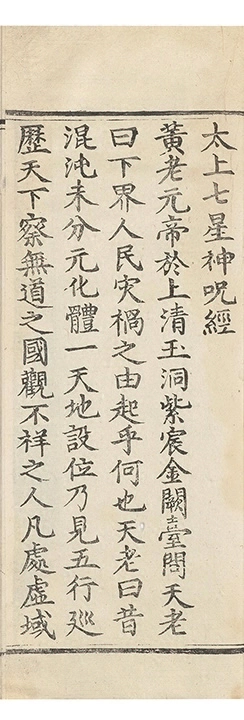 太上七星神呪經
黃老元帝於上清玉洞紫宸金闕臺問天老
曰下界人民灾禍之由起乎何也天老曰昔
混沌未分元化體一天地設位乃見五行廵
歷天下察無道之國觀不祥之人凡處虛域